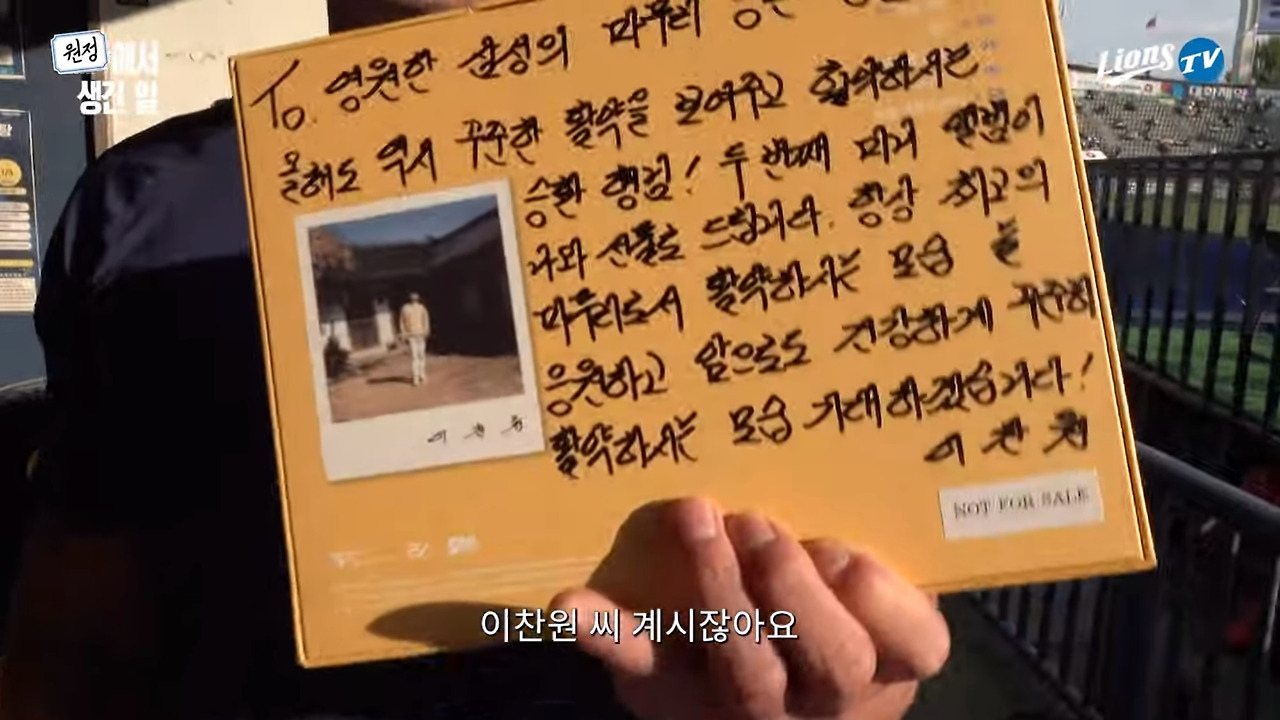 원정
에서
생긴 일
Lions TV
To. 영원한 삼성의 마무리
올해도 역시 꾸준한 활약을 보여주고 활약하시는
승환 행님! 두번째 미니 앨범이
나와 선물로 드립니다. 항상 최고의
마무리로서 활약하시는 모습 늘
응원하고 앞으로도 건강하게 꾸준히
활약하시는 모습 기대하겠습니다!
이찬원
이찬원
NOT FOR SALE
이찬원 씨 계시잖아요